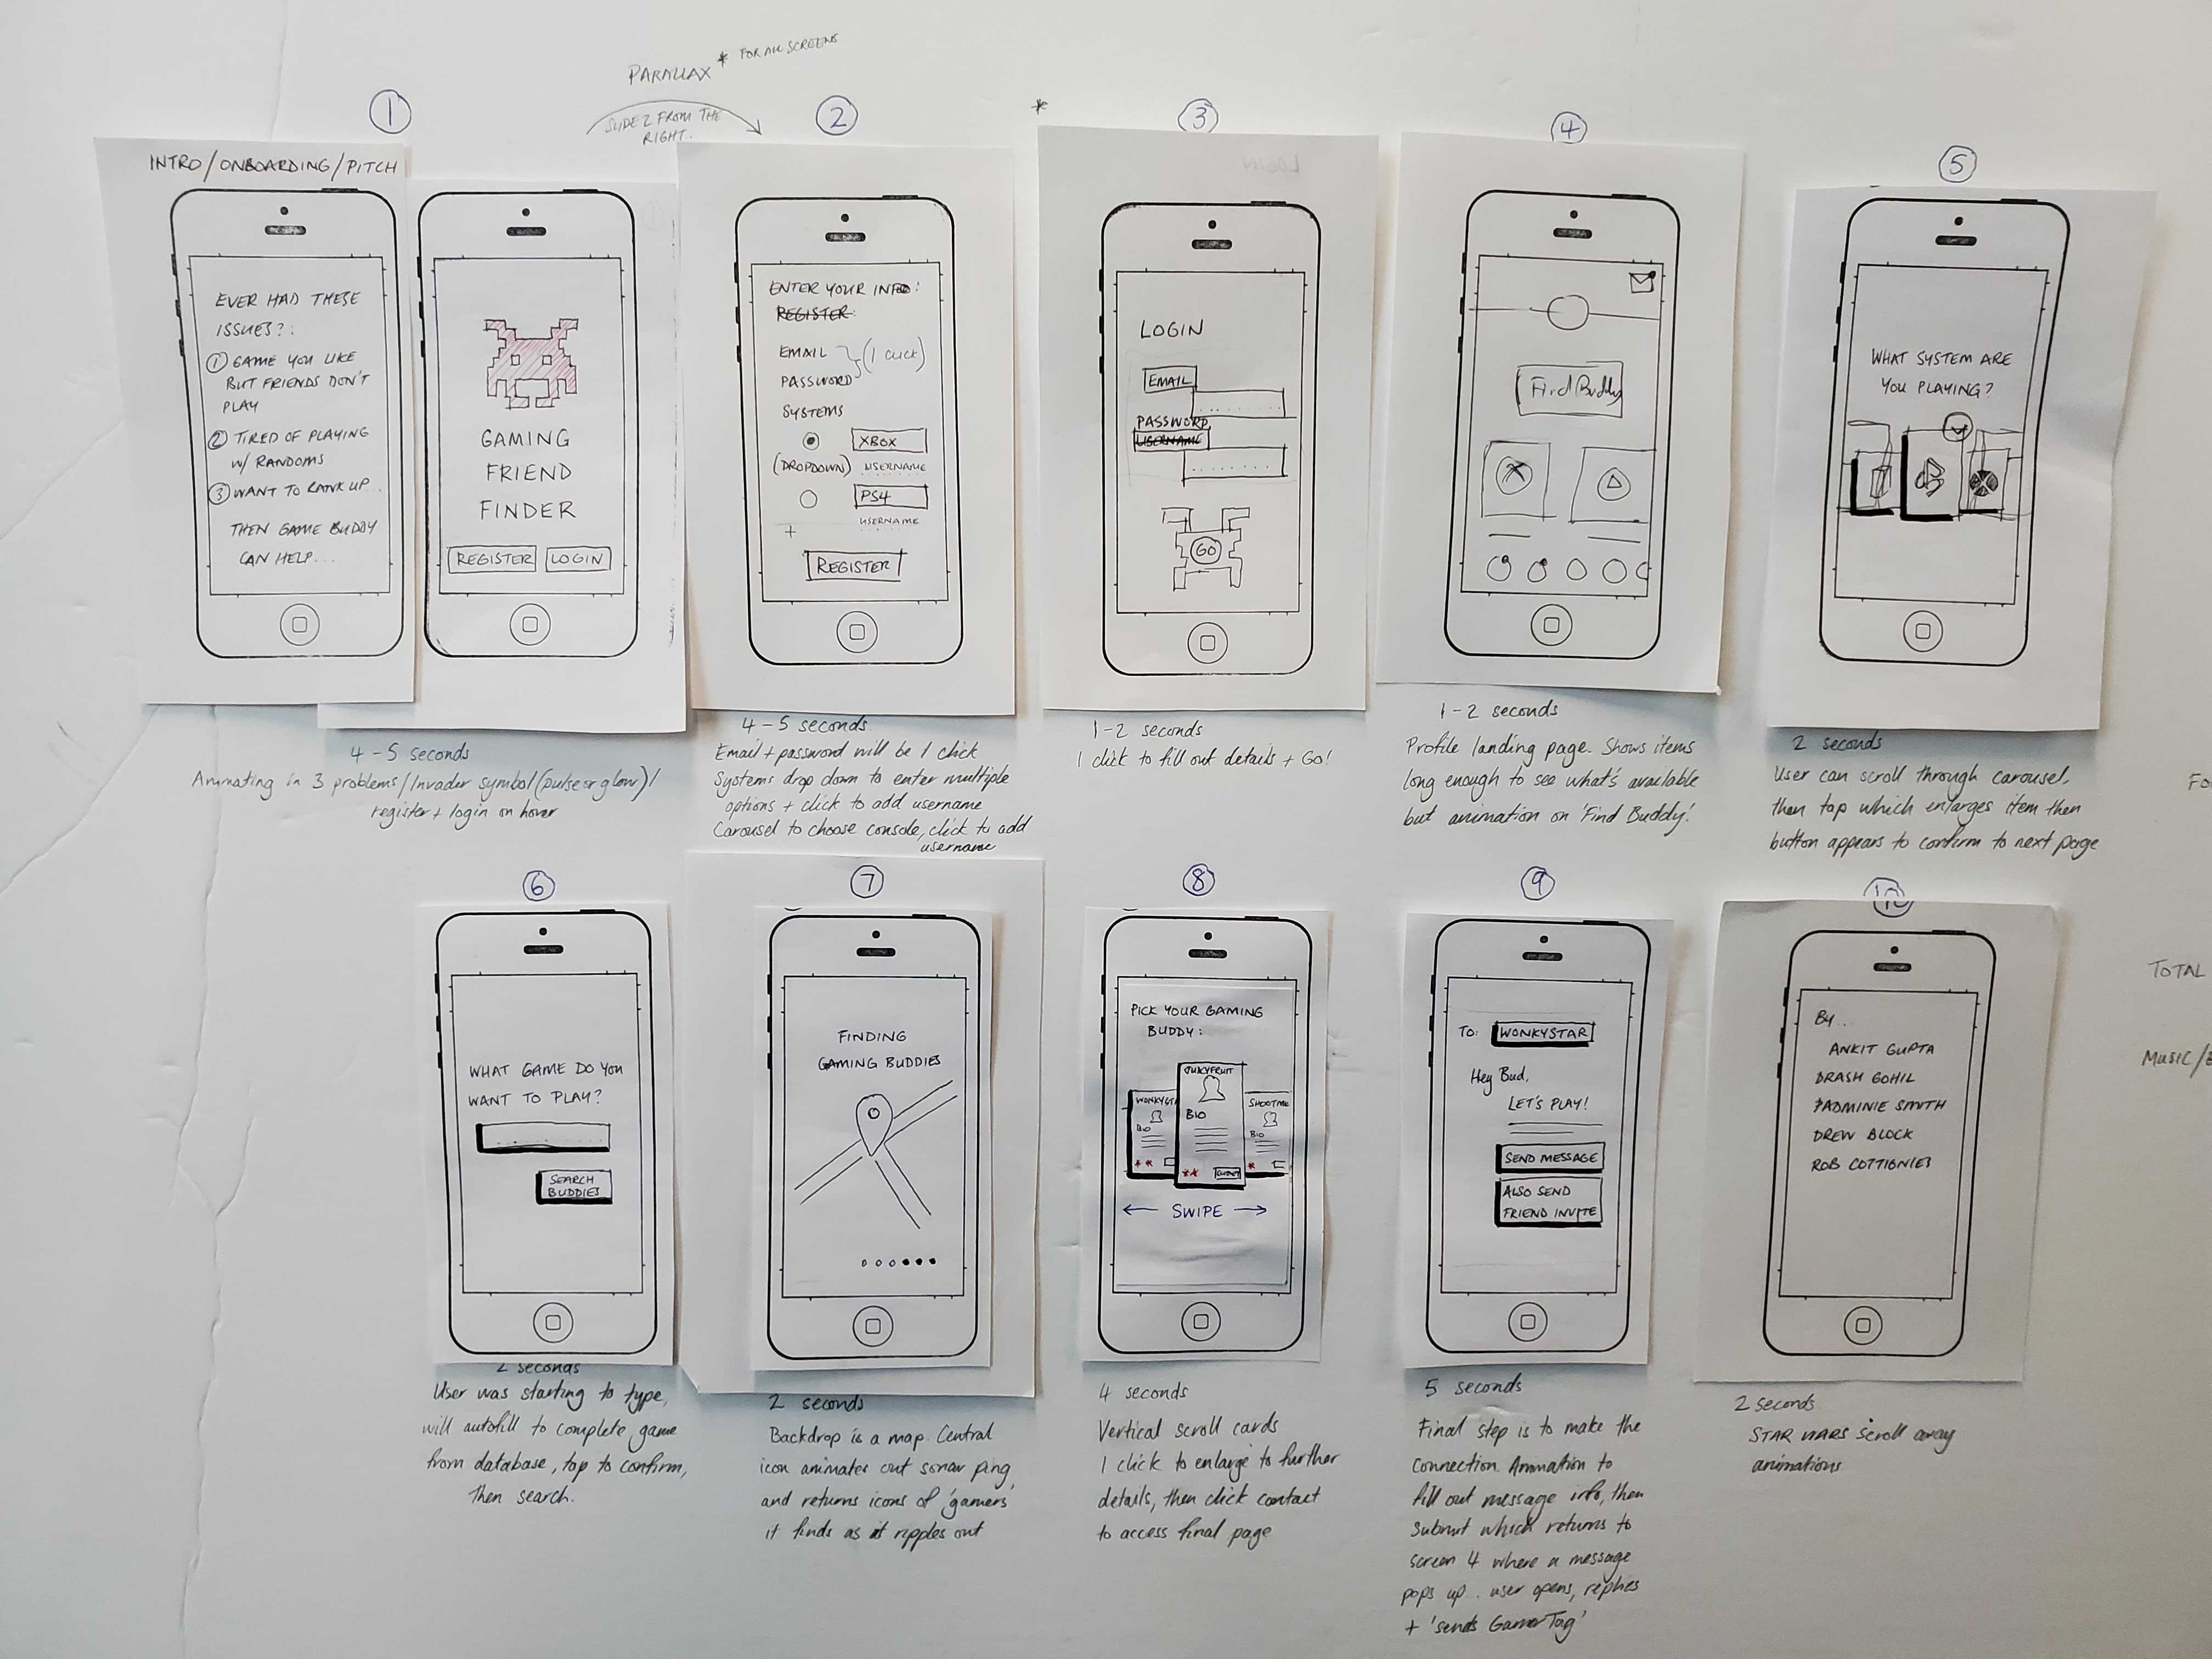 PARALLAX * FOR ALL SCREENS
SLIDE 2 FROM THE
RIGHT..
*
1
INTRO/ONBOARDING/PITCH
EVER HAD THESE
ISSUES?:
1 GAME YOU LIKE
BUT FRIENDS DON'T
PLAY
2 TIRED OF PLAYING
W/ RANDOMS
3 WANT TO RANK UP...
THEN GAME BUDDY
CAN HELP...
GAMING
FRIEND
FINDER
REGISTER LOGIN
4-5 seconds
Animating in 3 problems/Invader symbol (pulse or glow)/
register + login on hover
2
ENTER YOUR INFO:
REGISTER:
EMAIL
(1 CLICK)
PASSWORD
SYSTEMS
XBOX
(DROPDOWN) USERNAME
PS4
USERNAME
+
REGISTER
4-5 seconds
Email + password will be 1 click
Systems drop down to enter multiple
options + click to add username
Carousel to choose console, click to add
username
3
LOGIN
LOGIN
EMAIL
PASSWORD
USERNAME
GO
1-2 seconds
1 click to fill out details + Go!
4
Find Buddy
1-2 seconds
Profile landing page. Shows items
long enough to see what's available
but animation on 'Find Buddy'.
5
WHAT SYSTEM ARE
YOU PLAYING?
2 seconds
User can scroll through carousel,
then tap which enlarges item then
button appears to confirm to next page
6
WHAT GAME DO YOU
WANT TO PLAY?
SEARCH
BUDDIES
2 seconds
User was starting to type,
will autofill to complete game
from database, tap to confirm,
then search.
7
FINDING
GAMING BUDDIES
2 seconds
Backdrop is a map. Central
icon animates out sonar ping,
and returns icons of 'gamers'
it finds as it ripples out
8
PICK YOUR GAMING
BUDDY:
JUICYFRUIT
BIO
WONKYST
BIO
SHOOTME
BIO
← SWIPE →
4 seconds
Vertical scroll cards
1 click to enlarge to further
details, then click contact
to access final page
9
TO: WONKYSTAR
Hey Bud,
LET'S PLAY!
SEND MESSAGE
ALSO SEND
FRIEND INVITE
5 seconds
Final step is to make the
connection. Animation to
fill out message info, then
submit which returns to
screen 4 where a message
pops up.. user opens, replies
+ 'sends GamerTag'
BY...
ANKIT GUPTA
DRASH GOHIL
PADMINIE SMITH
DREW BLOCK
ROB COTTIGNIES
2 seconds
STAR WARS scroll away
animations
FO
TOTAL
MUSIC/